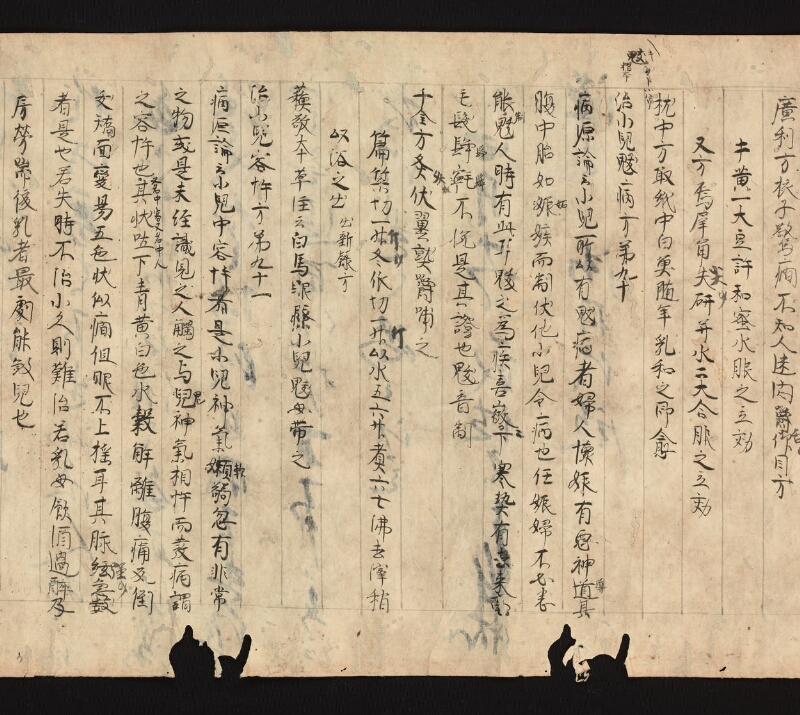 廣利方孩子驚癇不知人迷悶嚼舌仰目方
牛黄一大豆許和蜜水服之立効
又方烏犀角末研井水二大合服之立効
枕中方取
中白
随年乳和之即愈
治小兒鬾病方第九十
病源論云小兒所以有鬾病者婦人懷娠有惡神道其
腹中胎如娠嫉而制伏他小兒令病也任娠婦不必悉
能鬾人時有此耳鬾之為疾喜微下寒熱有去来毫
毛髮鬇鬡不悦是其證也鬾音制
千金方炙伏翼熟嚼哺之
篇竹切一升冬瓜切一升以水五六升煮六七沸去滓稍
以浴之出新錄方
蘓敬本草注云白馬眼療小兒鬾母帶之
治小兒客忤方第九十一
病源論云小兒中客忤者是小兒神氣軟弱忽有非常
之物或是未経識見之人觸之与兒神氣相忤而发病謂
之客忤也其状吐下青黄白色水穀解離腹痛反倒
夭矯面變易五色状似癇但眼不上摇耳其脉弦急數
者是也若失時不治小久則難治若乳母飲酒過醉及
房勞喘後乳者最劇能殺兒也